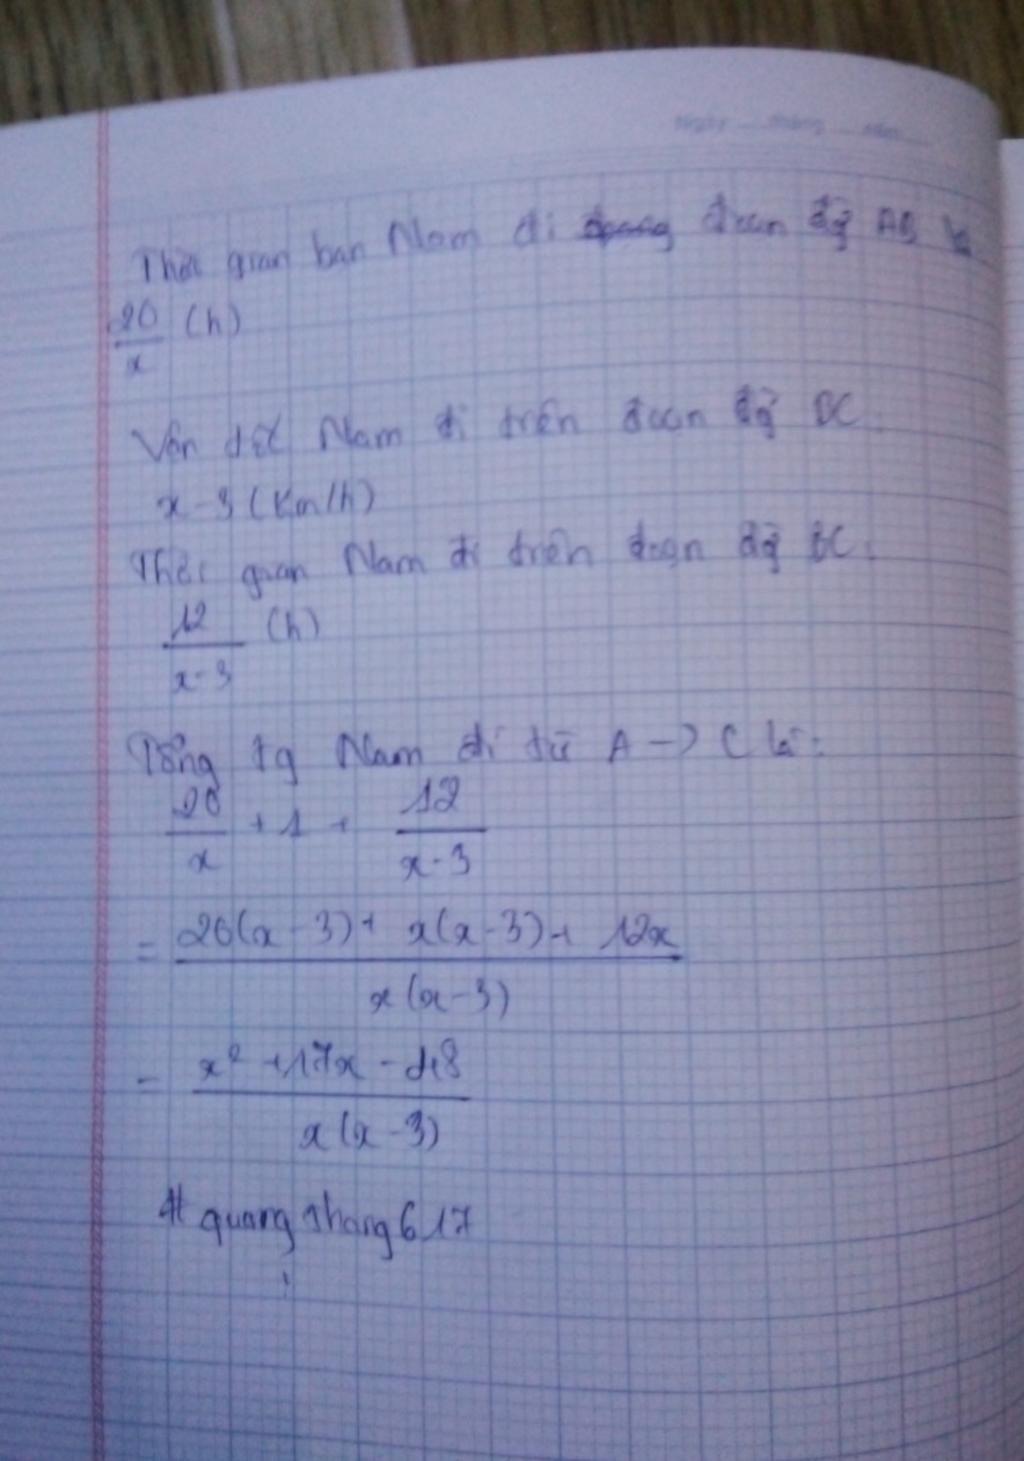 Ngày tháng năm
Thời gian bạn Nam đi đoạn đg AB là
20/x (h)
Vận tốc Nam đi trên đoạn đg BC
x-3 (Km/h)
Thời gian Nam đi trên đoạn đg BC:
12/(x-3) (h)
Tổng tg Nam đi từ A -> C là:
20/x + 1 + 12/(x-3)
= (20(x-3) + x(x-3) + 12x)/(x(x-3))
= (x² + 17x - 48)/(x(x-3))
# quangthang617